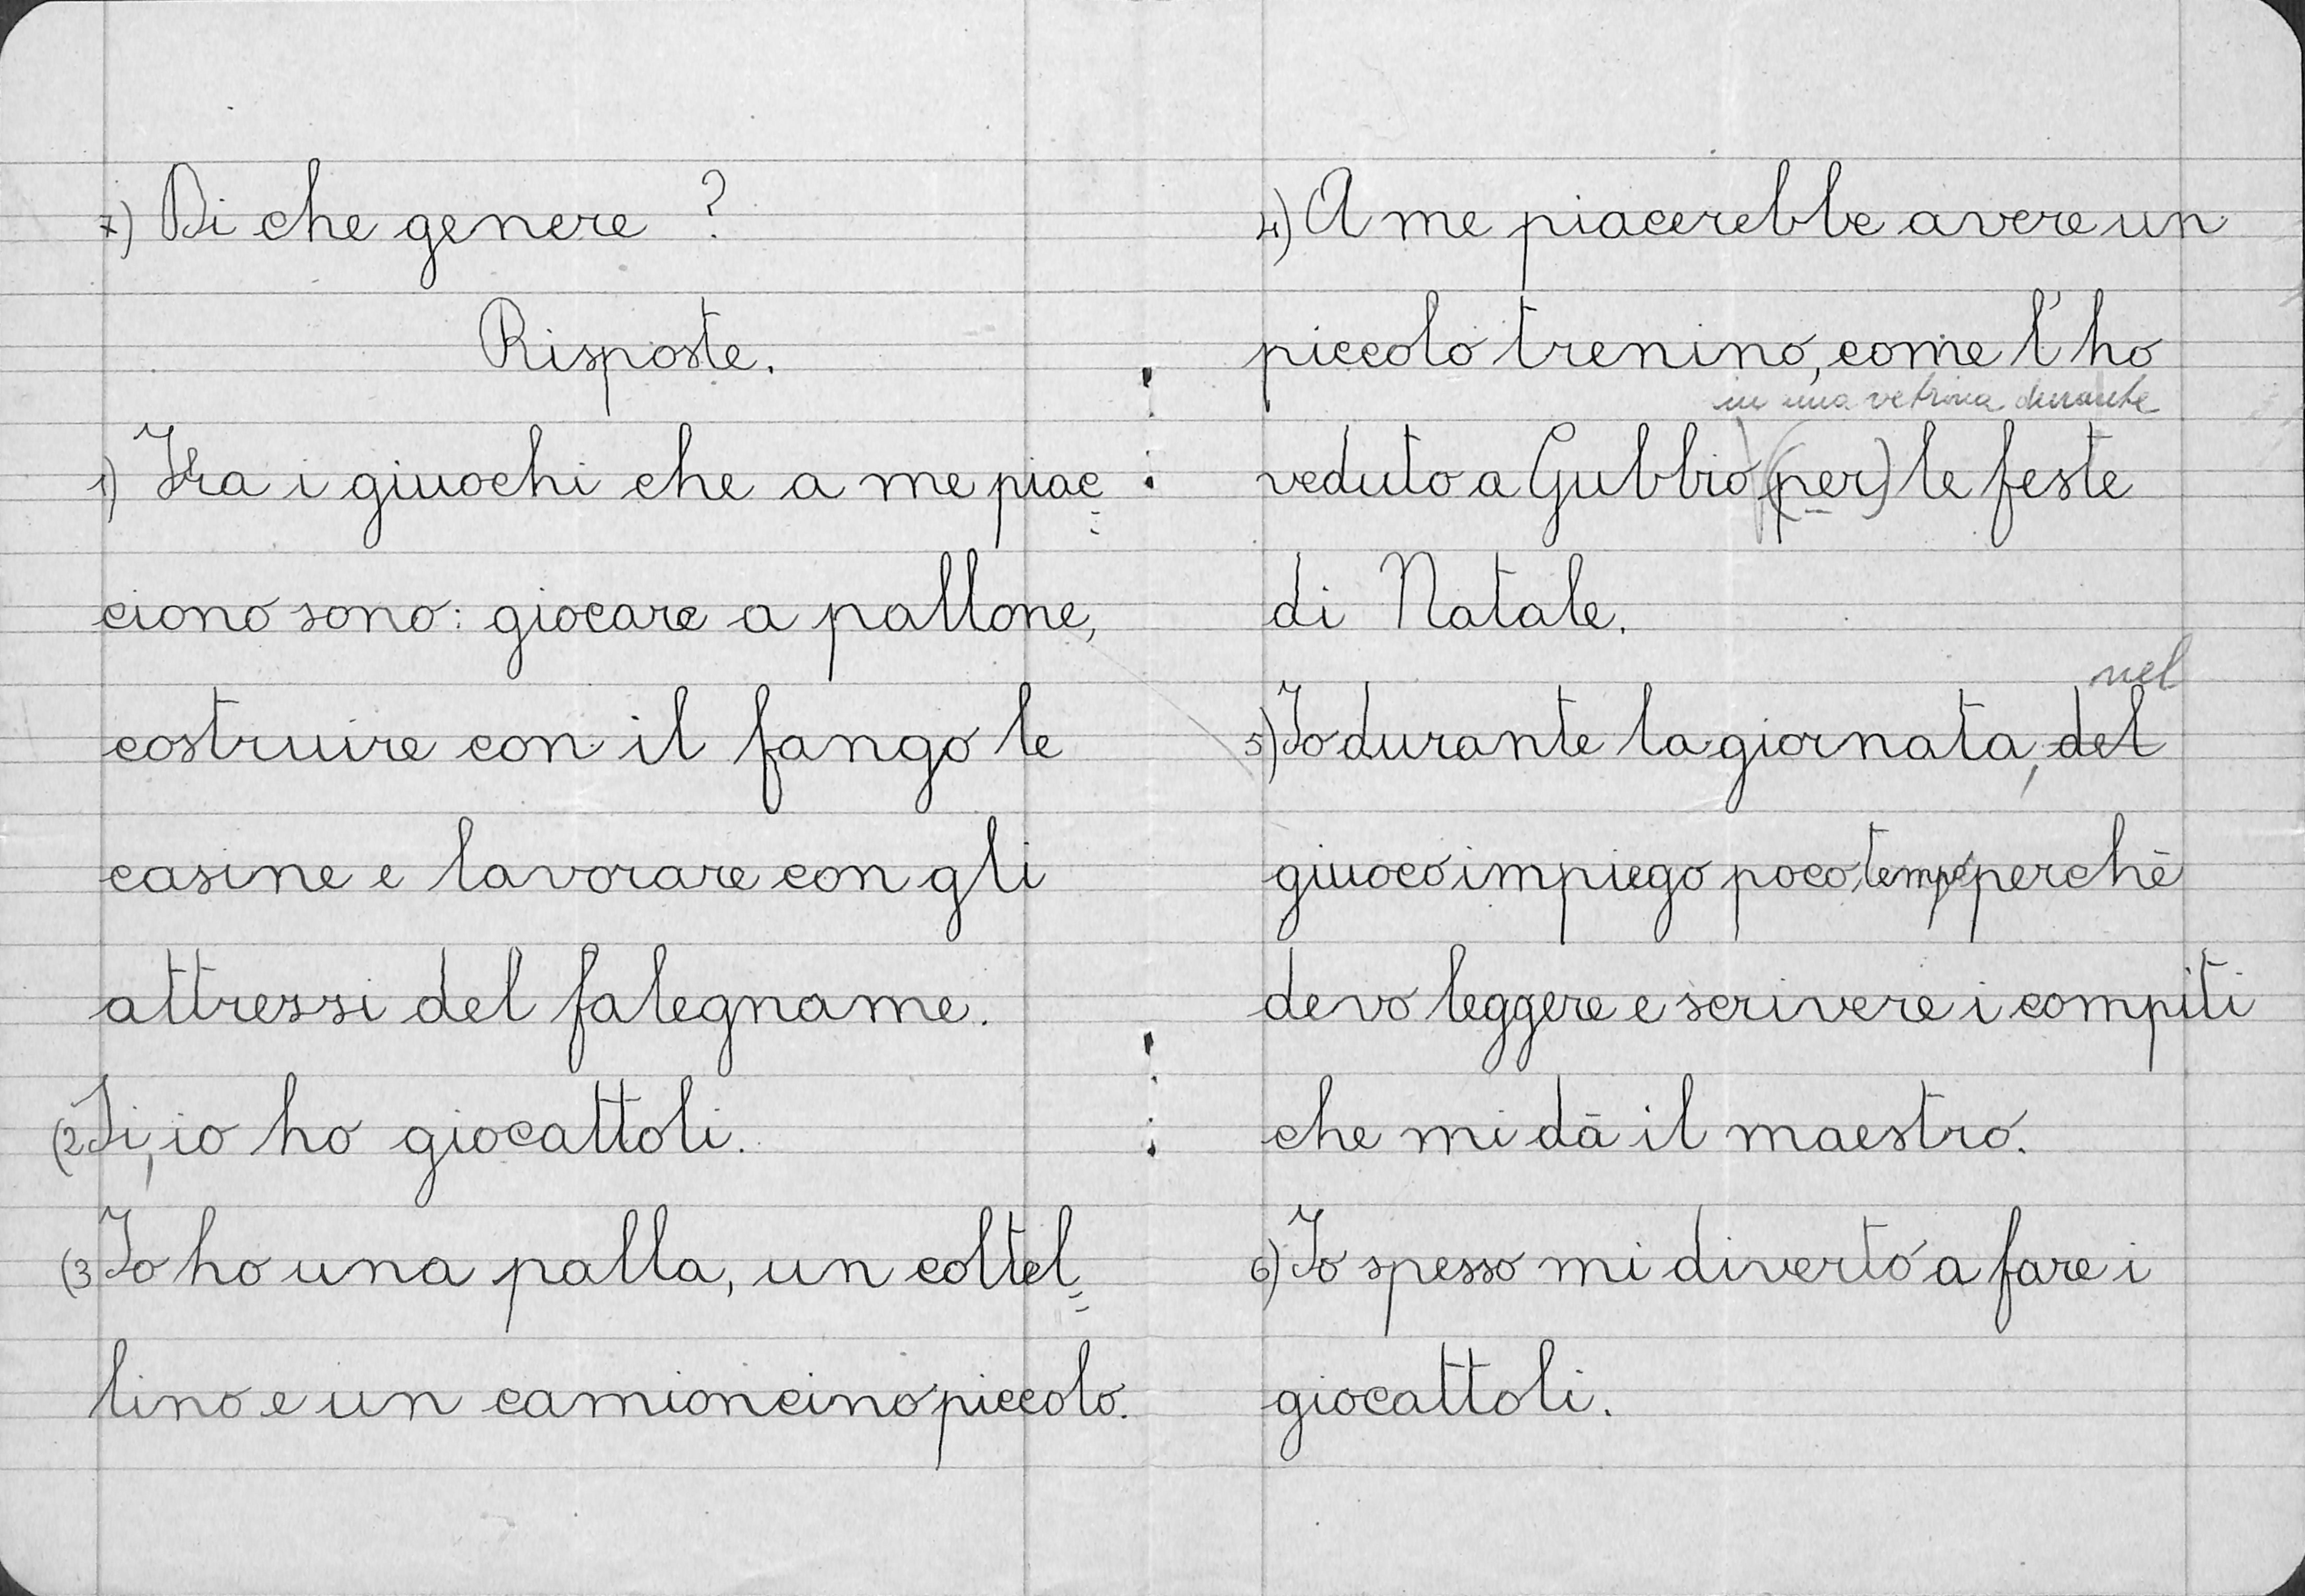 7) Di che genere ?
Risposte.
1) Fra i giuochi che a me piac=
ciono sono: giocare a pallone,
costruire con il fango le
casine e lavorare con gli
attrezzi del falegname.
(2 Si, io ho giocattoli.
(3 Io ho una palla, un coltel=
lino e un camioncino piccolo.
4) A me piacerebbe avere un
piccolo trenino, come l'ho
in una vetrina durante
veduto a Gubbio (per) le feste
di Natale.
nel
5) Io durante la giornata, del
giuoco impiego poco tempo perchè
devo leggere e scrivere i compiti
che mi dà il maestro.
6) Io spesso mi diverto a fare i
giocattoli.